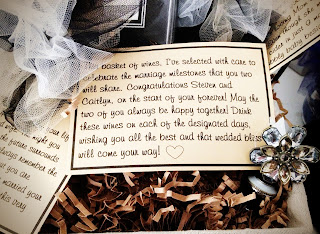 basket of wines, I've selected with care to
celebrate the marriage milestones that you two
will share. Congratulations Steven and
Caitlyn, on the start of your forever! May the
two of you always be happy together! Drink
these wines on each of the designated days,
wishing you all the best and that wedded bliss
will come your way!
future surrounds
always remember the
you are married your
this very